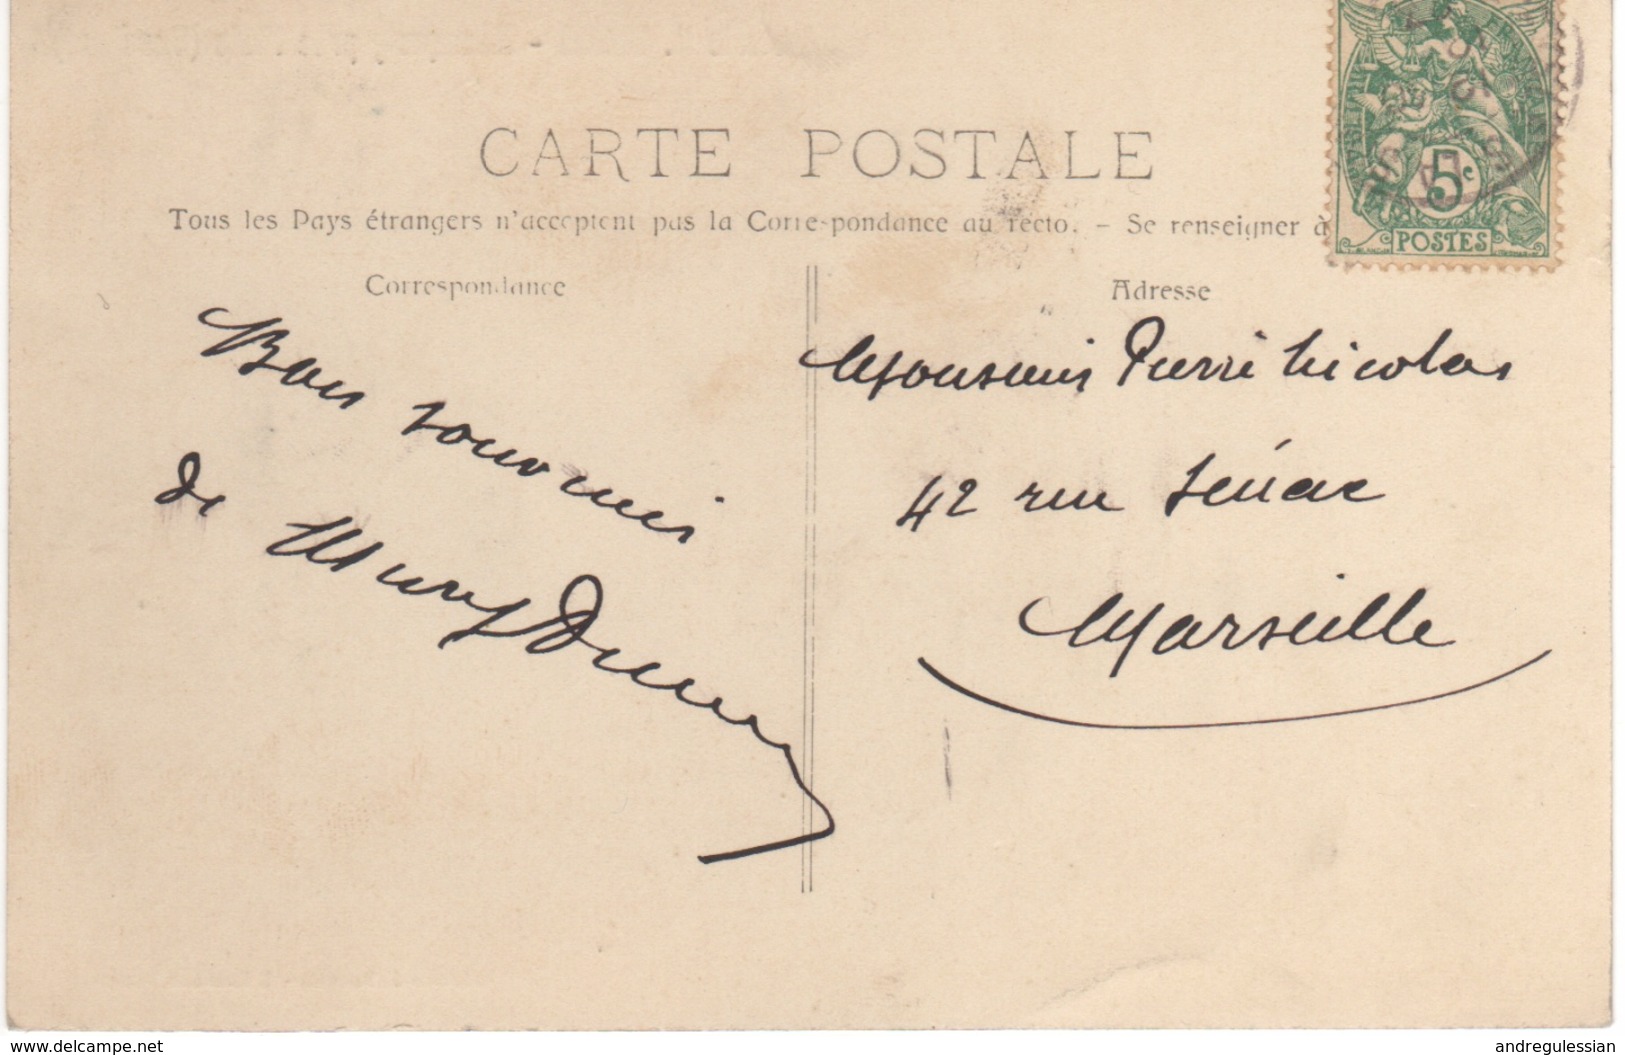 CARTE POSTALE
Tous les Pays étrangers n'acceptent pas la Correspondance au recto. - Se renseigner à
Correspondance
Adresse
Bon souvenir
de
Monsieur Pierre Nicolas
42 rue Sénac
Marseille
5c
POSTES
www.delcampe.net
andregulessian